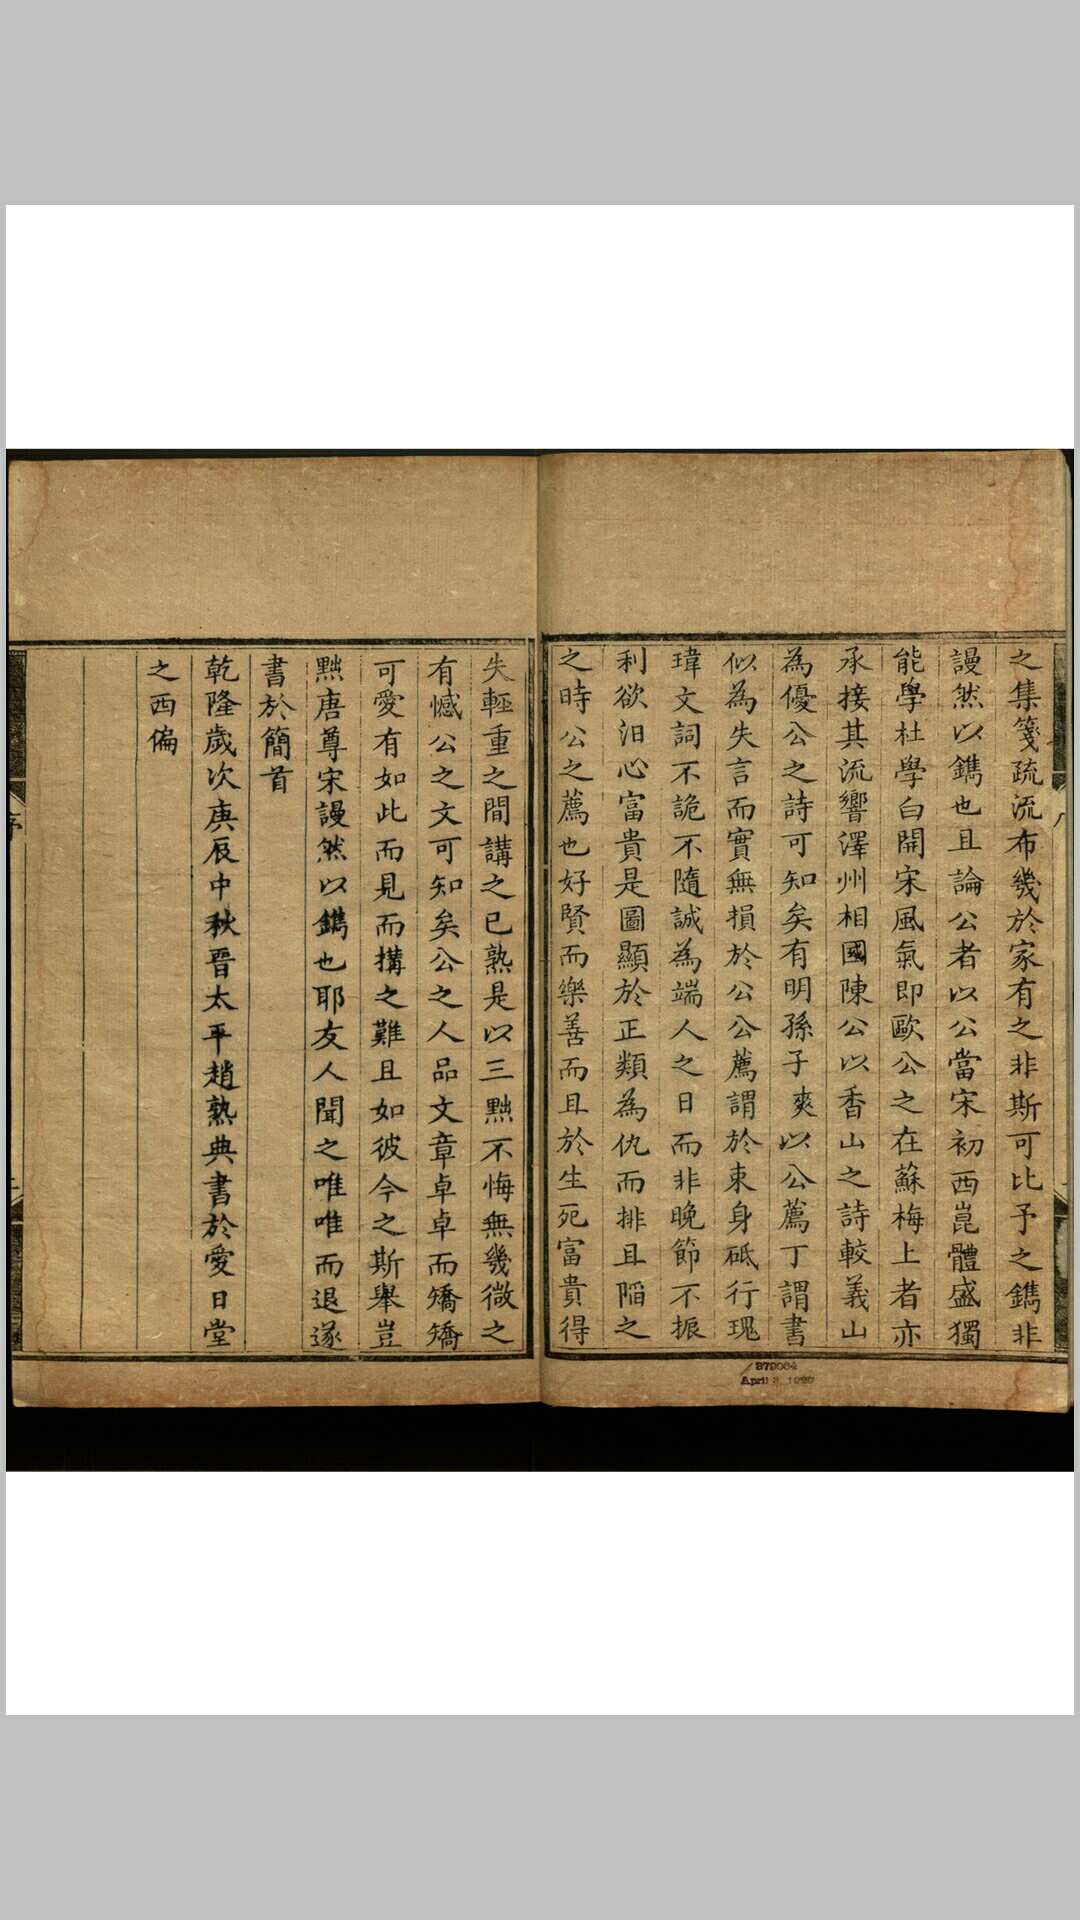 之集箋疏流布幾於家有之非斯可比予之鐫非
謾然以鐫也且論公者以公當宋初西崑體盛獨
能學杜學白開宋風氣即歐公之在蘇梅上者亦
承接其流響澤州相國陳公以香山之詩較義山
為優公之詩可知矣有明孫子爽以公薦丁謂書
似為失言而實無損於公公薦謂於束身砥行瑰
瑋文詞不詭不隨誠為端人之日而非晚節不振
利欲汨心富貴是圖顯於正類為仇而排且陷之
之時公之薦也好賢而樂善而且於生死富貴得
失輕重之間講之已熟是以三黜不悔無幾微之
有憾公之文可知矣公之人品文章卓卓而矯矯
可愛有如此而見而搆之難且如彼今之斯舉豈
黜唐尊宋謾然以鐫也耶友人聞之唯唯而退遂
書於簡首
乾隆歲次庚辰中秋晉太平趙熟典書於愛日堂
之西偏
序
379084
April 3, 1929